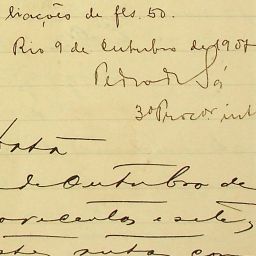 liações de fls. 50.
Rio 9 de Outubro de 1907
Pedro de Sá
3º Procor int
Data
de Outubro de
novecentos e sete,
estes autos com